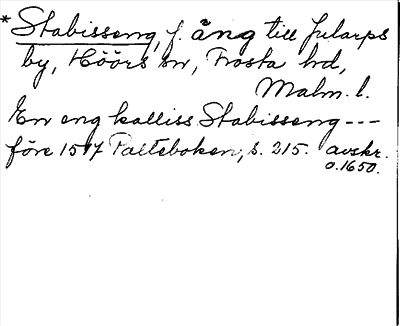 *Stabisseng, f. äng till Jularps
by, Höörs sn, Frosta hd,
Malm. l.
En eng kalliss Stabisseng ---
före 1517 Palteboken, s. 215. avskr.
o. 1650.